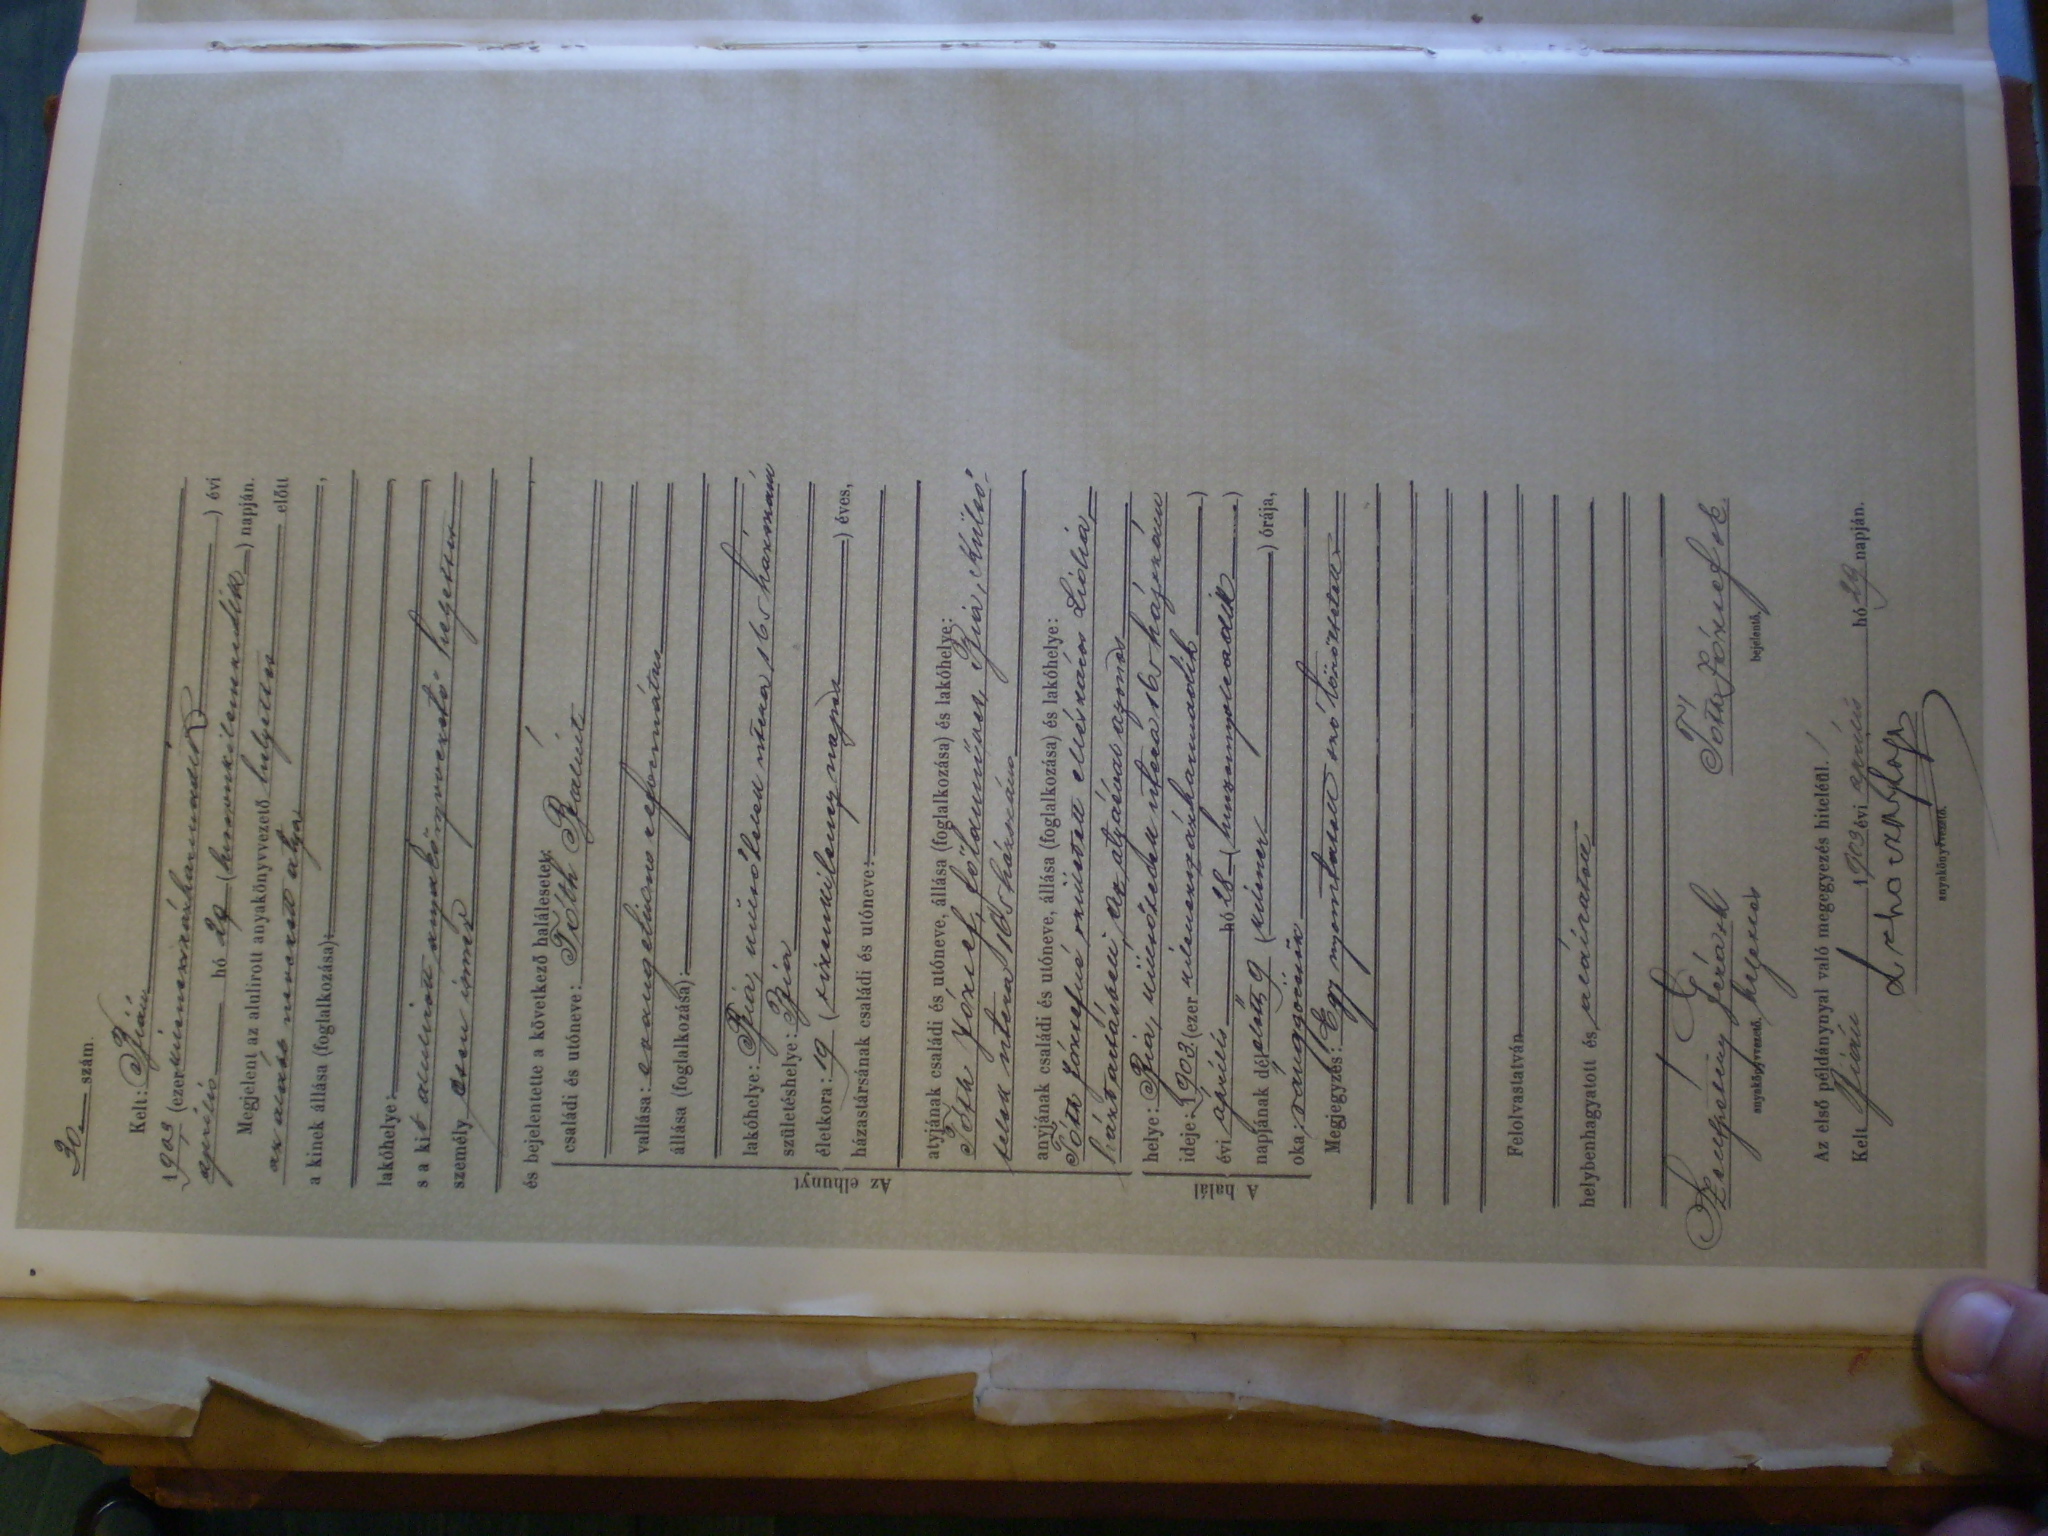 30. szám.
Kelt: Bián
1903 (ezerkilenczszázharmadik) évi
április hó 29 (huszonkilenczedik) napján.
Megjelent az alulirott anyakönyvvezető helyettes előtt
az alább nevezett atya,
a kinek állása (foglalkozása):
lakóhelye:
s a kit alulirott anyakönyvvezető helyettes
személyesen ismer
és bejelentette a következő halálesetet:
Az elhunyt
családi és utóneve: Tóth Bálint
vallása: evangelicus református
állása (foglalkozása):
lakóhelye: Bia, külsőtelek utcza 165 házszám
születéshelye: Bia
életkora: 19 (tizenkilencz napos) éves,
házastársának családi és utóneve:
atyjának családi és utóneve, állása (foglalkozása) és lakóhelye:
Tóth József, földmüves, Bia, külső-
telek utcza 165 házszám
anyjának családi és utóneve, állása (foglalkozása) és lakóhelye:
Tóth Józsefné született Lidia,
háztartásbeli, az atyáéval azonos
A halál
helye: Bia, külsőtelek utcza 165 házszám
ideje: 1903. (ezerkilenczszázharmadik)
évi április hó 28 (huszonnyolczadik)
napjának délelőtt 9 (kilencz) órája,
oka: ránggörcsök
Megjegyzés: Egy nyomtatott szó töröltetett
Felolvastatván
helybenhagyatott és aláiratott
Tóth József
anyakönyvvezető. helyettes bejelentő.
Az első példánynyal való megegyezés hiteléül!
Kelt Bián 1903 évi április hó 29 napján.
anyakönyvvezető.